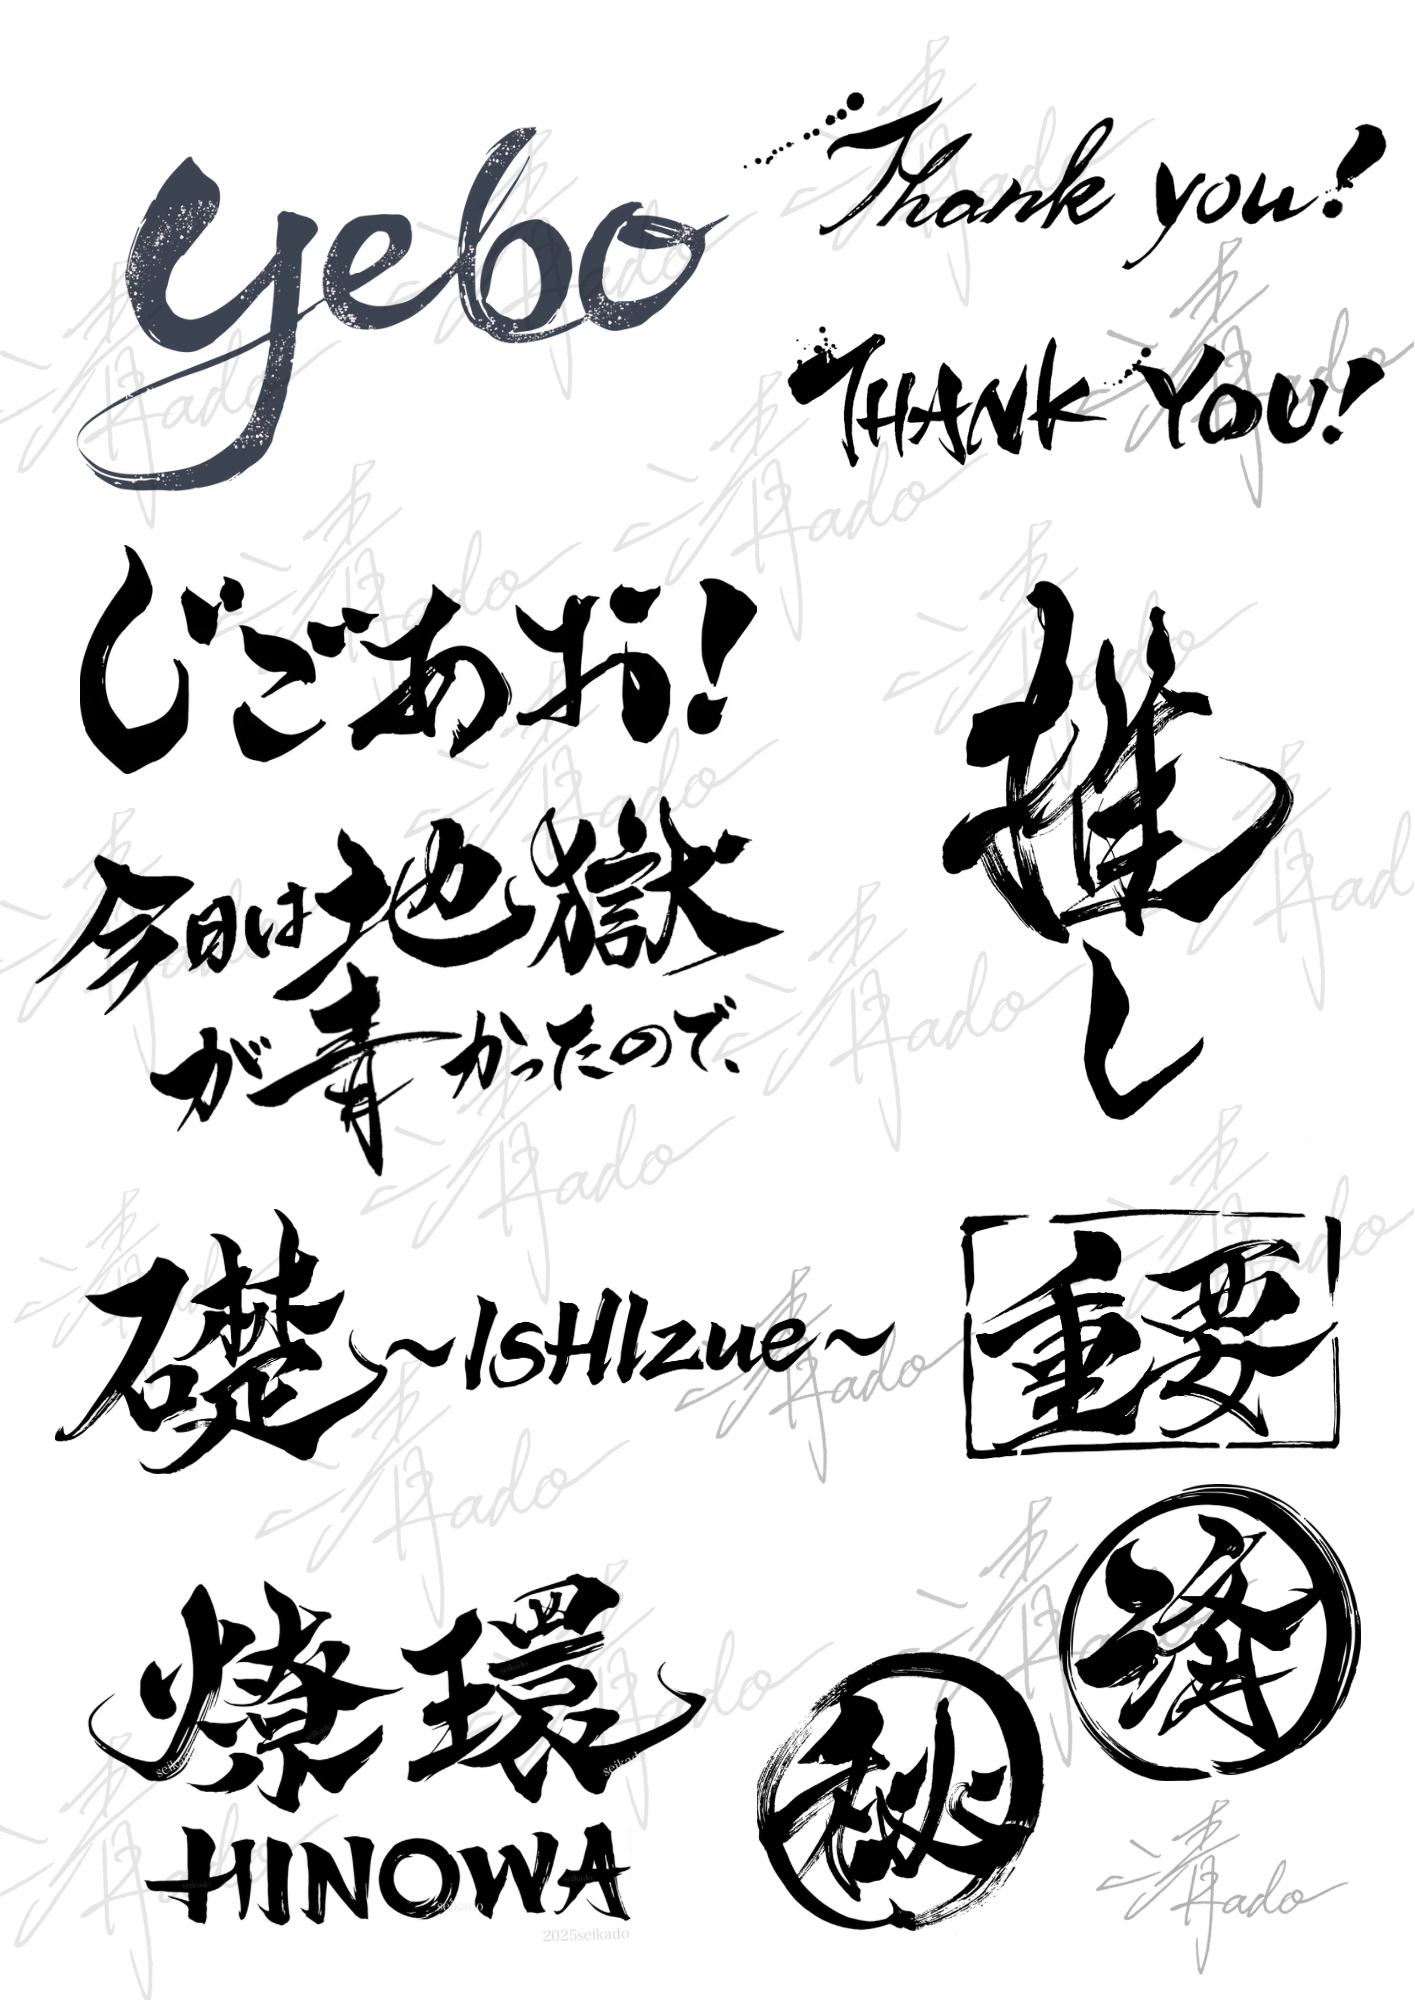 yebo
Thank you!
THANK YOU!
じごあお!
推し
今日は地獄
が青かったので、
礎 ~ISHIzue~
重要
済
燎環
秘
HINOWA
2025seikado
清kado